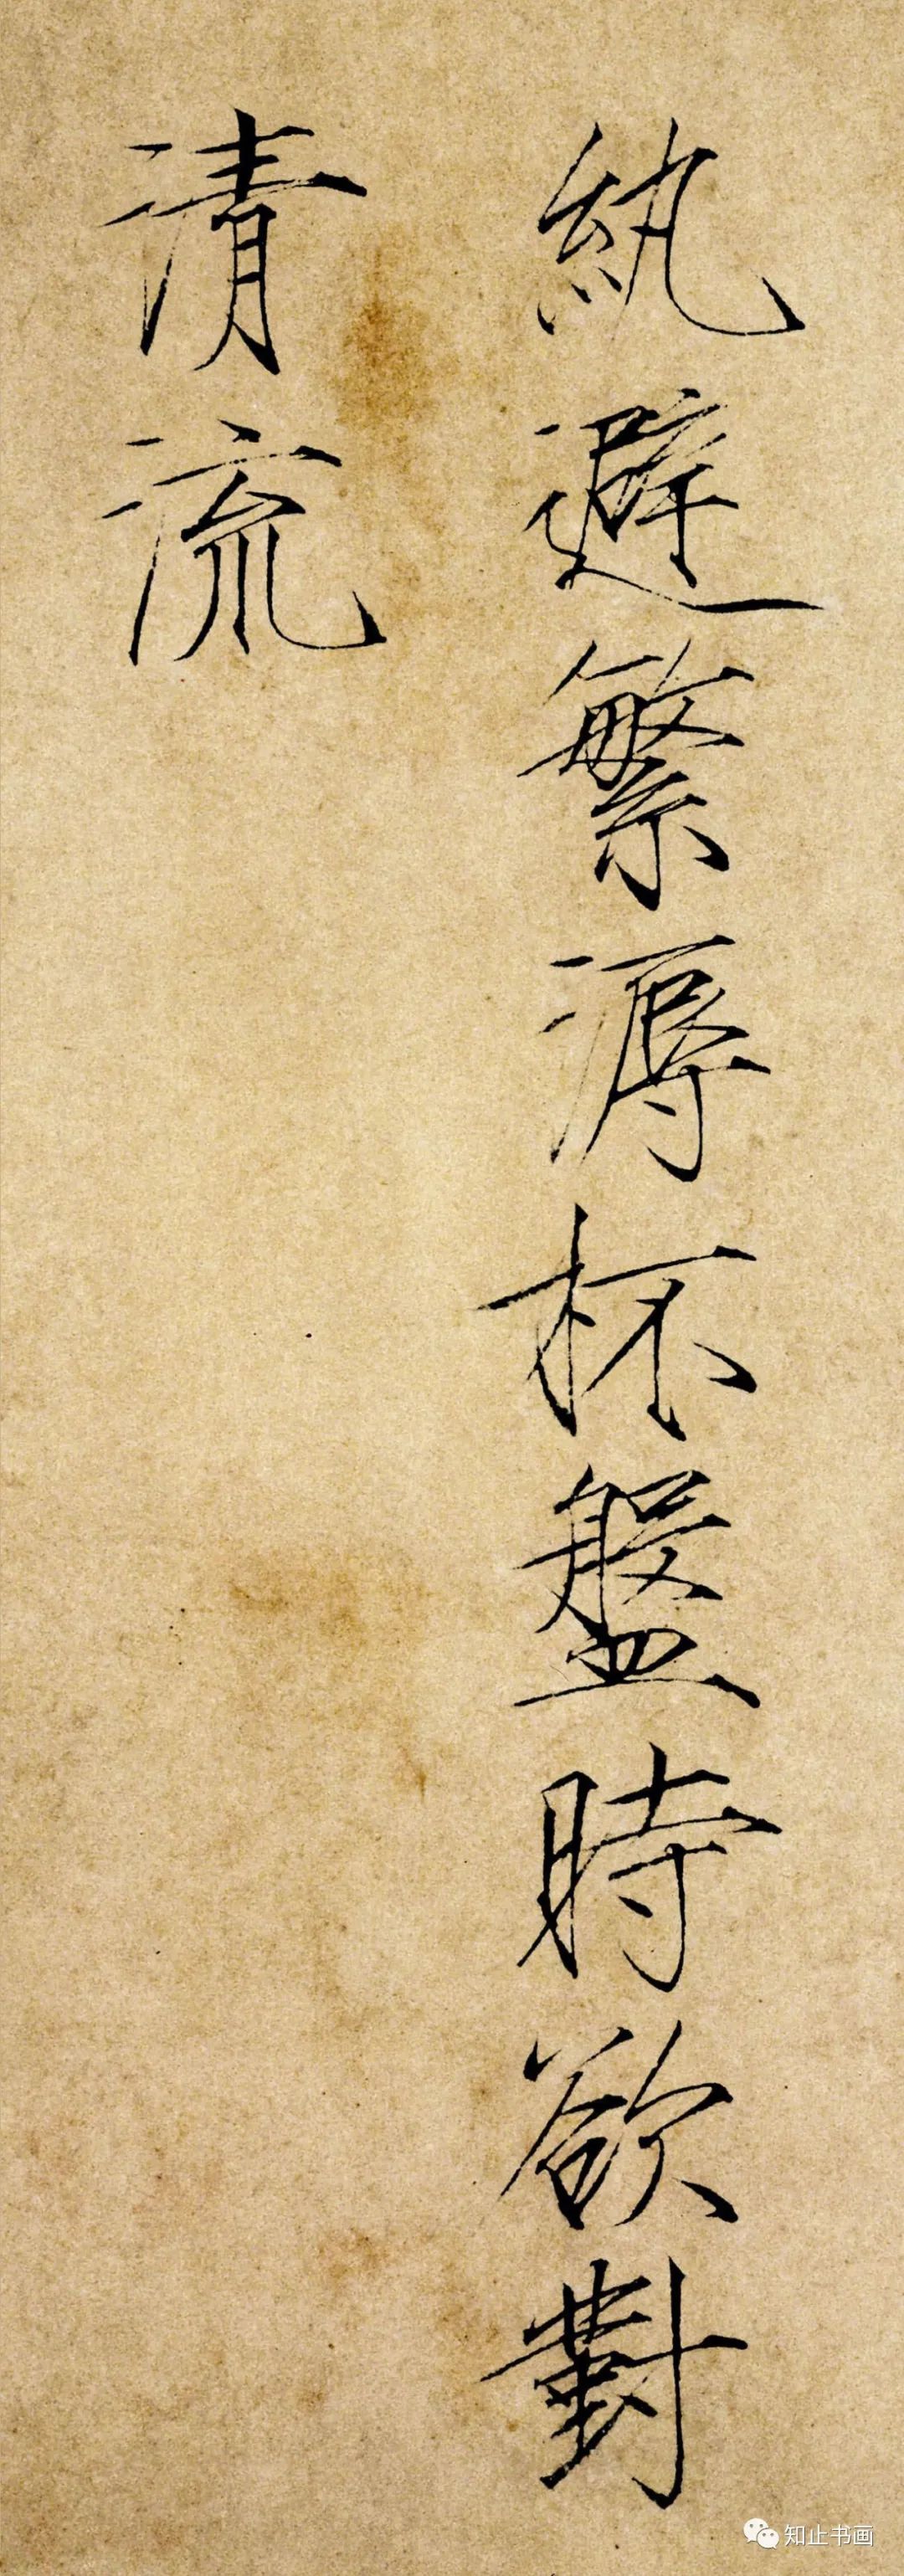 紈避繁溽杯盤時欲對
清流
知止书画